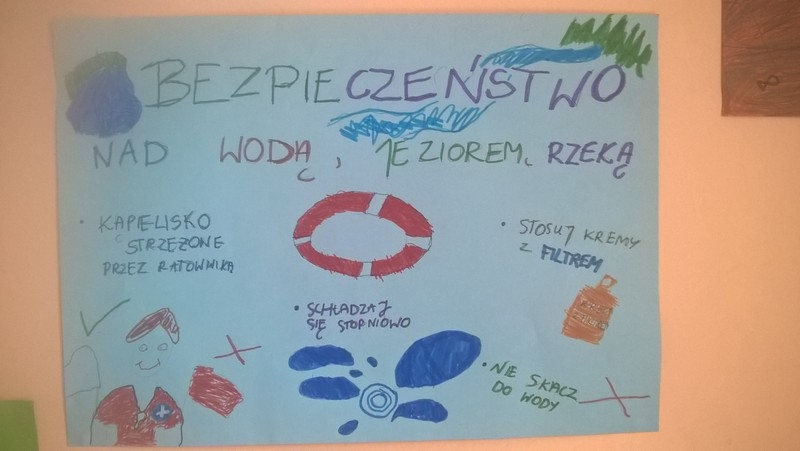 BEZPIECZEŃSTWO
NAD WODĄ, JEZIOREM, RZEKĄ
• KĄPIELISKO
STRZEŻONE
PRZEZ RATOWNIKA
• STOSUJ KREMY
Z FILTREM
• SCHŁADZAJ
SIĘ STOPNIOWO
• NIE SKACZ
DO WODY